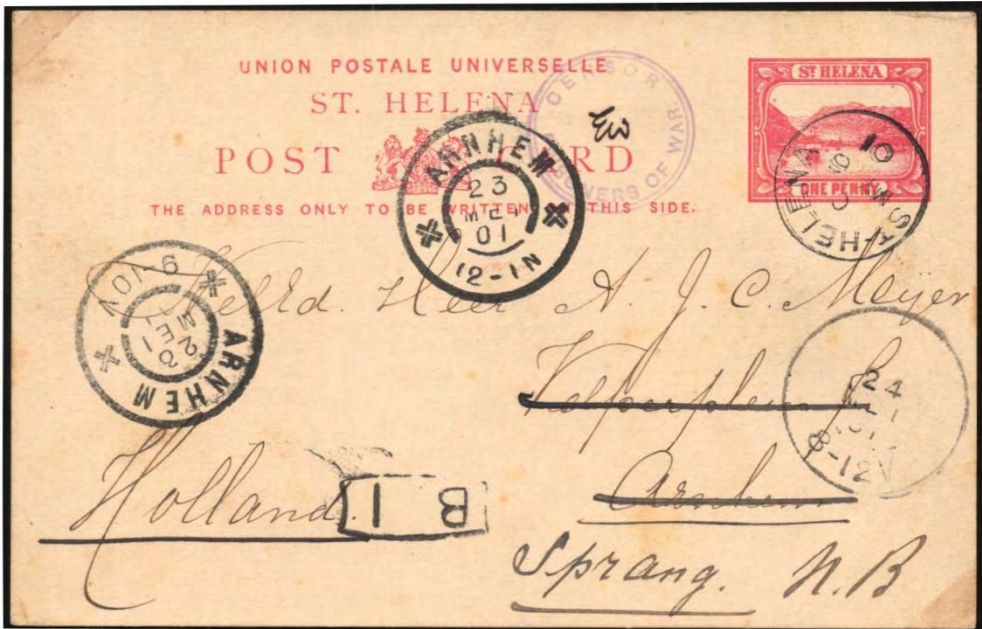 UNION POSTALE UNIVERSELLE
ST. HELENA
POST CARD
THE ADDRESS ONLY TO BE WRITTEN ON THIS SIDE.
CENSOR
PRISONERS OF WAR
EW
ST HELENA
ONE PENNY
ST. HELENA
01
ARNHEM
23
MEI
01
12-1N
ARNHEM
23
MEI
9-10V
WelEd. Heer A. J. C. Meijer
Velperplein
Arnhem
24
8-12V
Holland.
B 1
Sprang. N.B